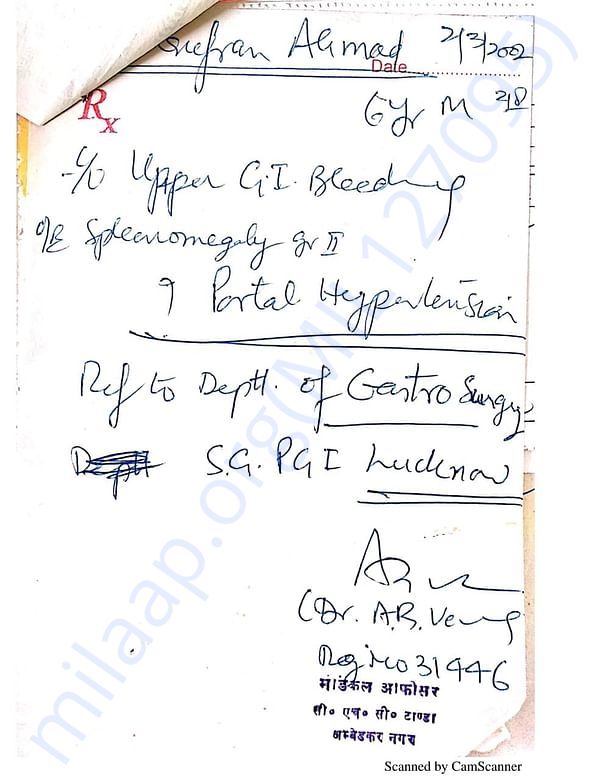 Ahmad 2/3/2002
Date
Rx
6 yr M
C/o Upper G.I. Bleeding
O/E Spleenomegaly gr II
? Portal Hypertension
Ref to Deptt. of Gastro Surgery
Deptt S.G. PGI Lucknow
(Dr. A.B. Verma
Reg No 31446
मेडिकल आफीसर
सी० एच० सी० टाण्डा
अम्बेडकर नगर
milaap.org(MIL127095)
Scanned by CamScanner